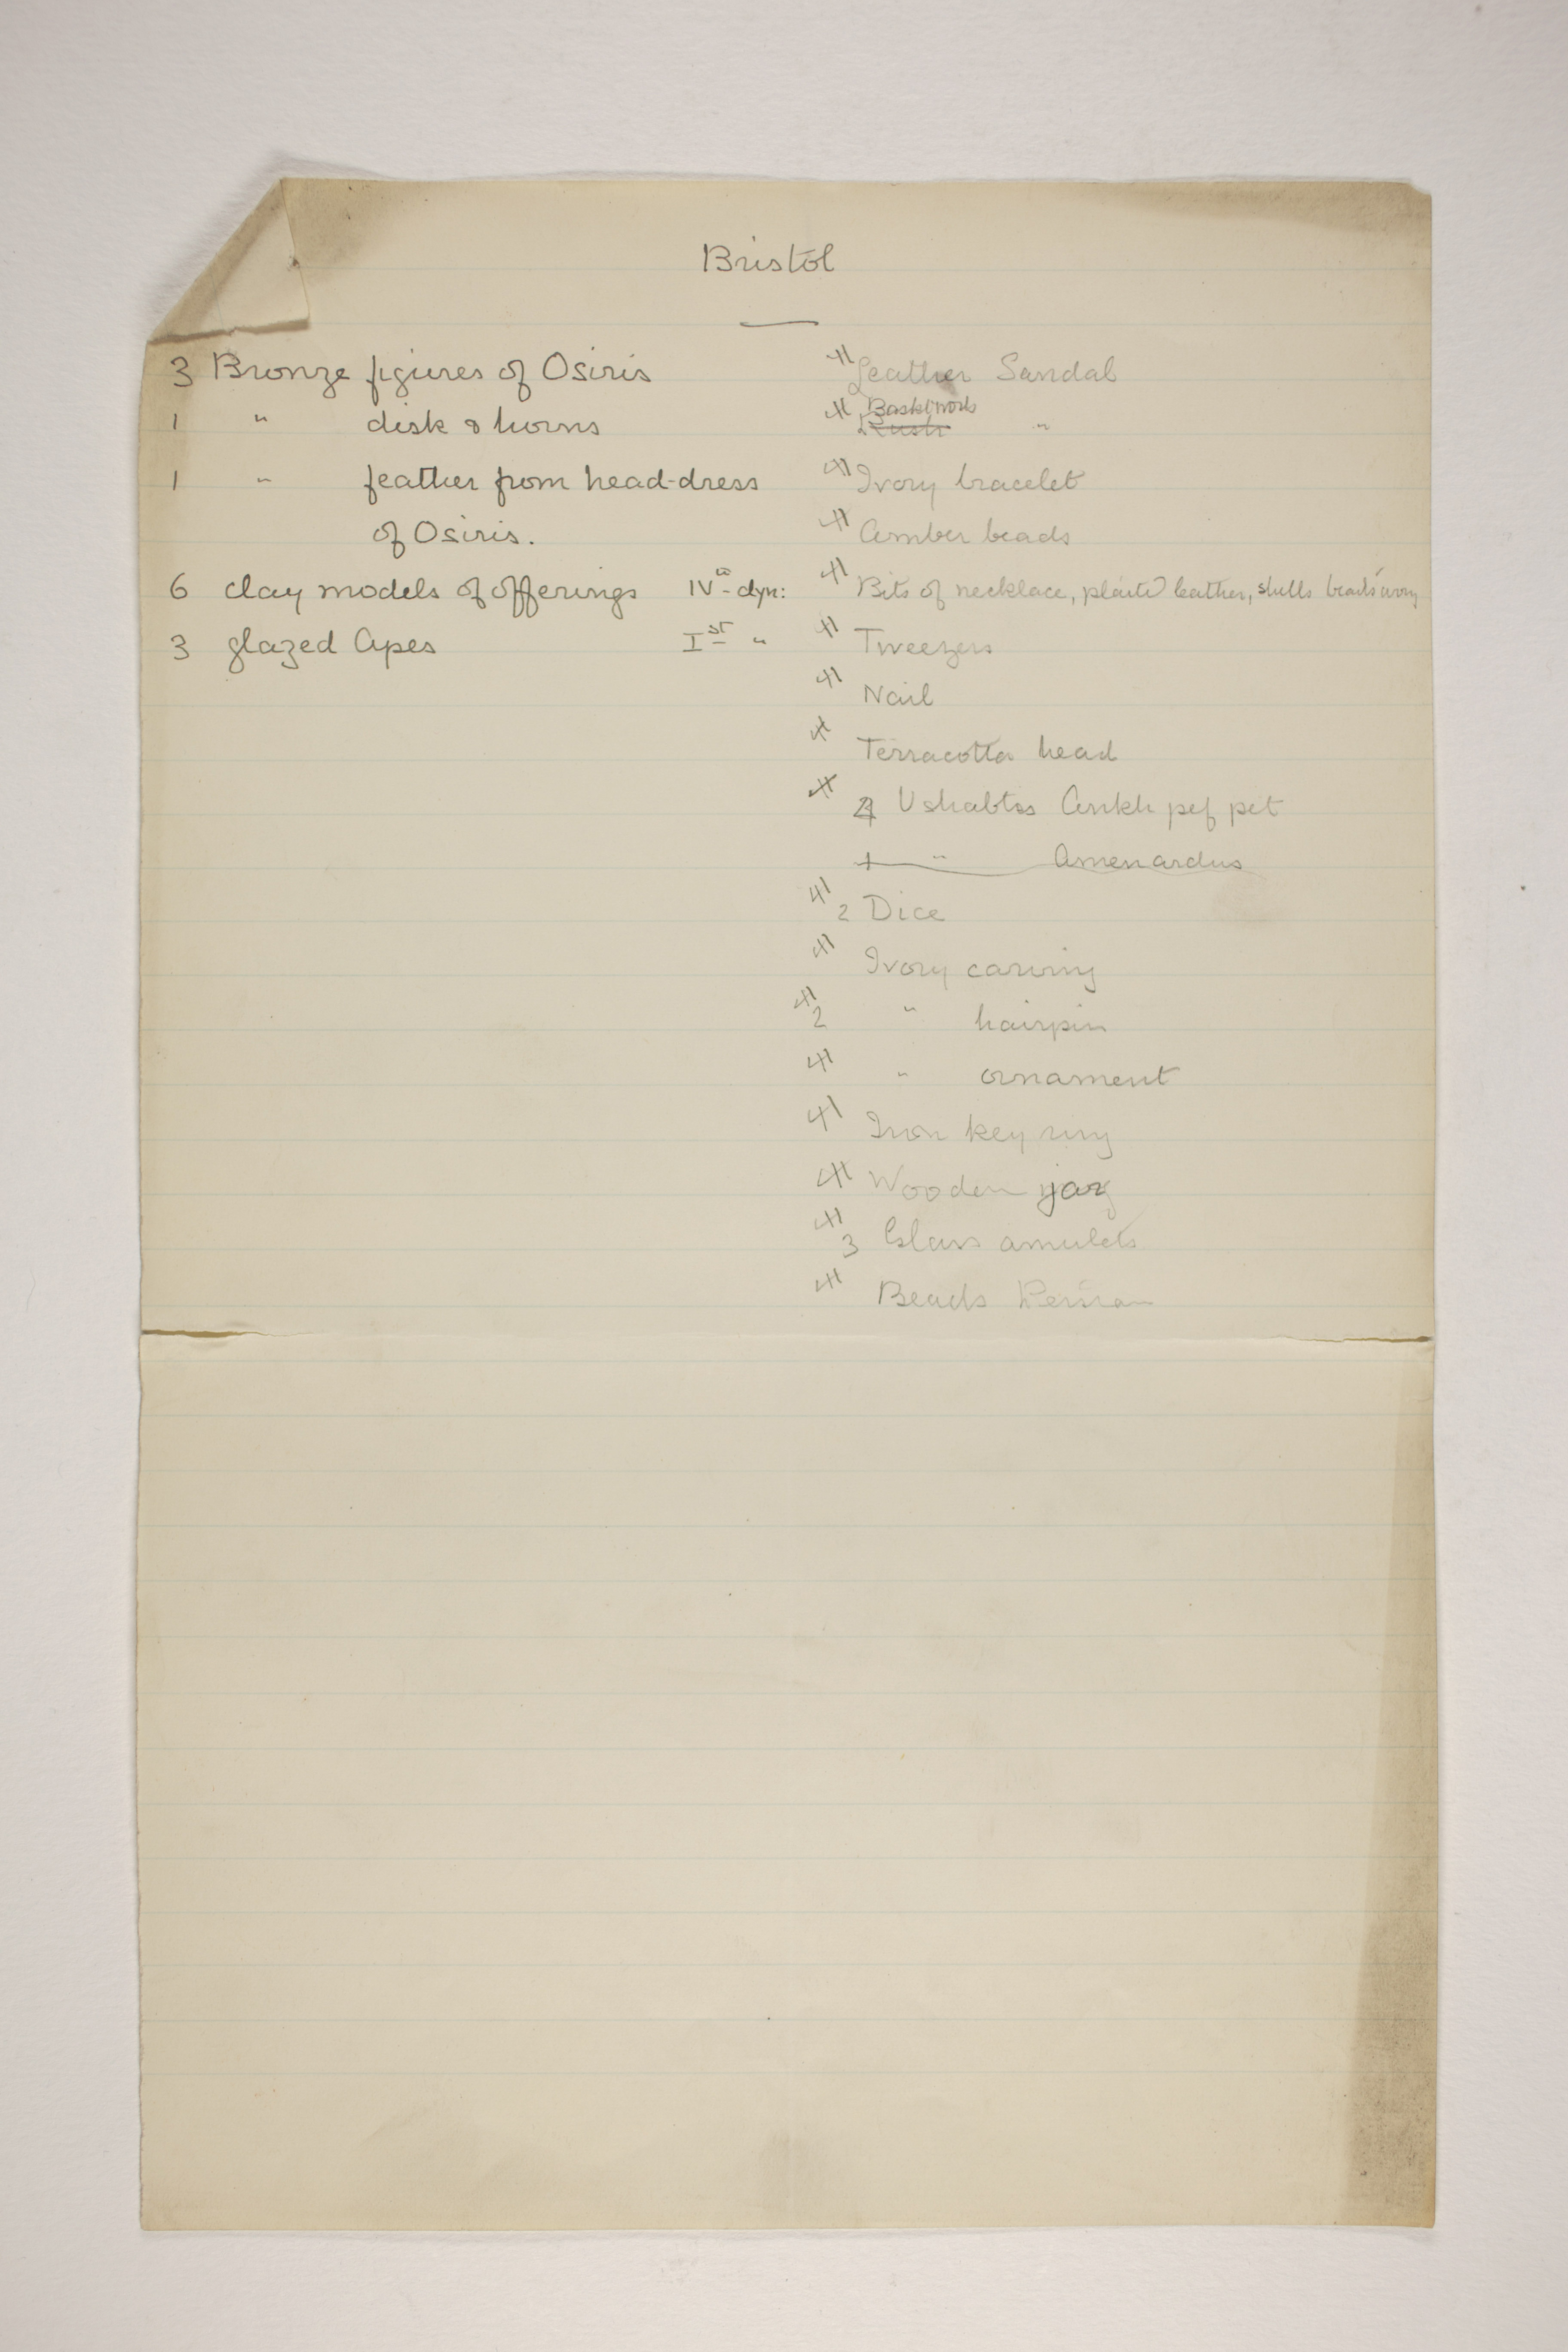 Bristol
3 Bronze figures of Osiris
1 " disk & horns
1 " feather from head-dress
of Osiris.
6 clay models of offerings IVth dyn:
3 glazed Apes Ist "
Leather Sandal
Basketwork
Rush "
Ivory bracelet
Amber beads
Bits of necklace, plaited leather, shells beads ivory
Tweezers
Nail
Terracotta head
Ushabtis Ankh pef pet
1 " Amenardus
2 Dice
Ivory carving
2 " hairpin
" ornament
Iron key ring
Wooden jar
3 Glass amulets
Beads